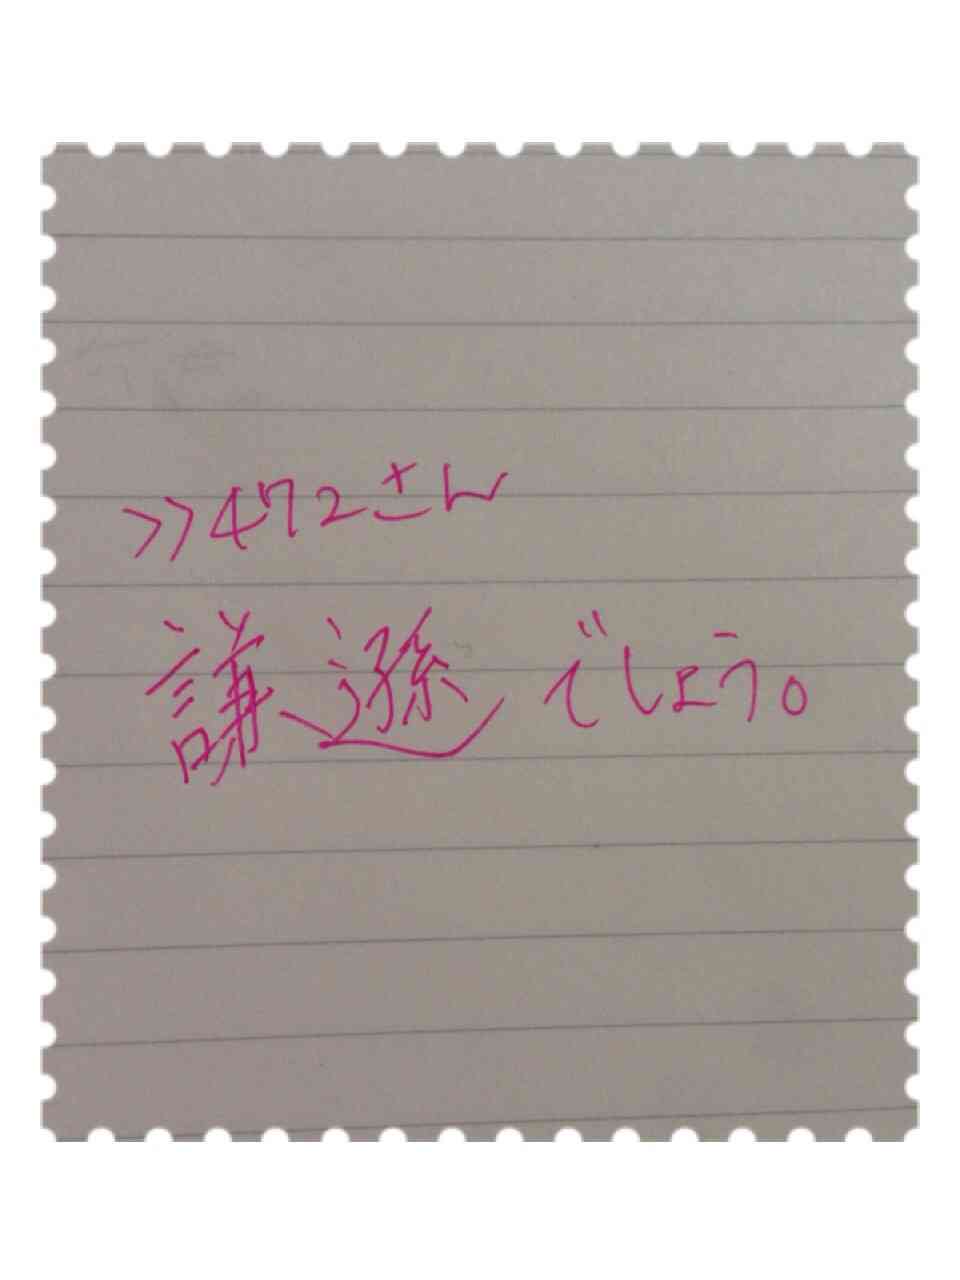 >>472さん
謙遜でしょう。